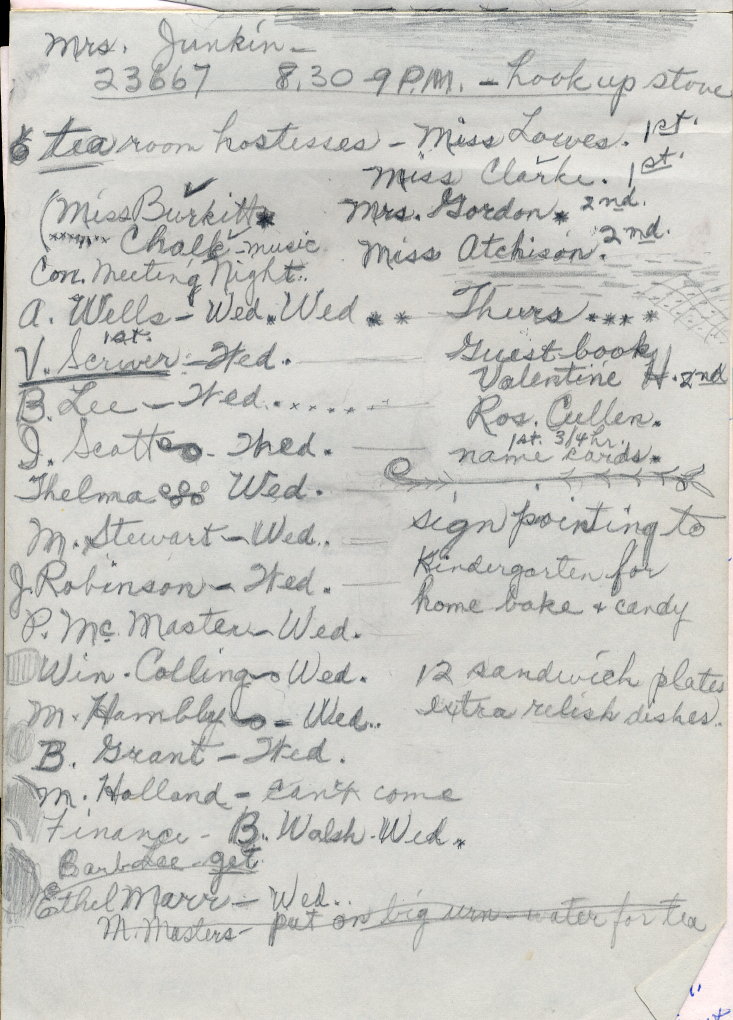 Mrs. Junkin -
23667 8.30 9 P.M. - hook up stove
tea room hostesses - Miss Lowes. 1st.
Miss Clarke. 1st.
(Miss Burkitt Mrs. Gordon. 2nd.
Chalk - music Miss Atchison. 2nd.
Con. Meeting Night.
A. Wells - Wed. Wed Thurs....
1st.
V. Scriver - Wed. Guest book
Valentine H. 2nd
B. Lee - Wed. ......
Ros. Cullen.
1st. 3/4 hr.
I. Scott - Wed. name cards.
Thelma Wed.
sign pointing to
M. Stewart - Wed..
Kindergarten for
J. Robinson - Wed.
home bake & candy
P. McMaster - Wed.
Win. Colling - Wed. 12 sandwich plates
M. Hambly - Wed.. extra relish dishes.
B. Grant - Wed.
M. Holland - can't come
Finance - B. Walsh - Wed.
get
Ethel Marr - Wed..
M. Masters - put on big urn - water for tea